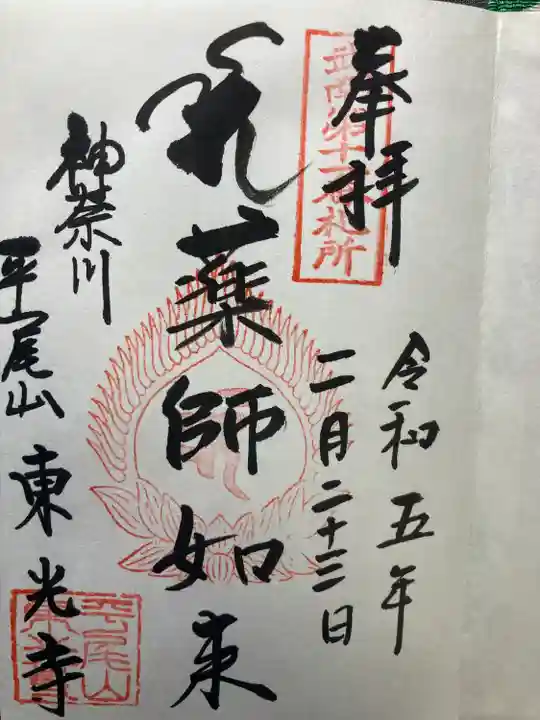 奉拝
令和五年
二月二十三日
薬師如来
神奈川
平尾山 東光寺
平尾山
東光寺